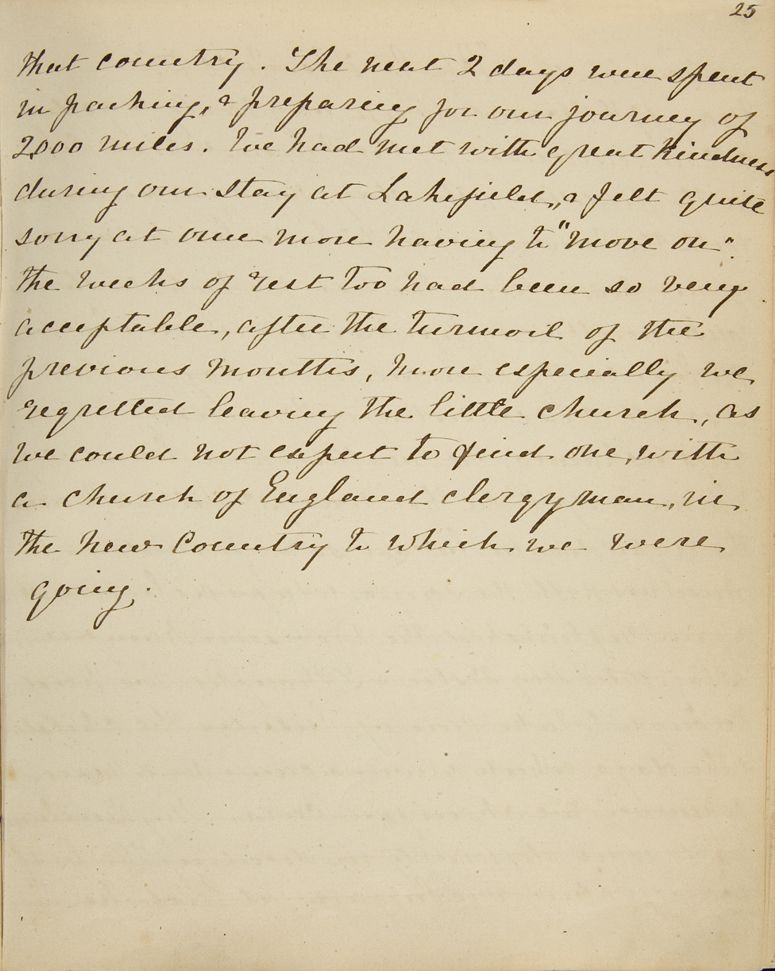 25
that country. The next 2 days were spent
in packing, & preparing for our journey of
2,000 miles. We had met with great kindness
during our stay at Lakefield, & felt quite
sorry at once more having to "move on".
the weeks of rest too had been so very
acceptable, after the turmoil of the
previous months, more especially we
regretted leaving the little church, as
we could not expect to find one, with
a church of England clergyman, in
the new Country to which we were
going.